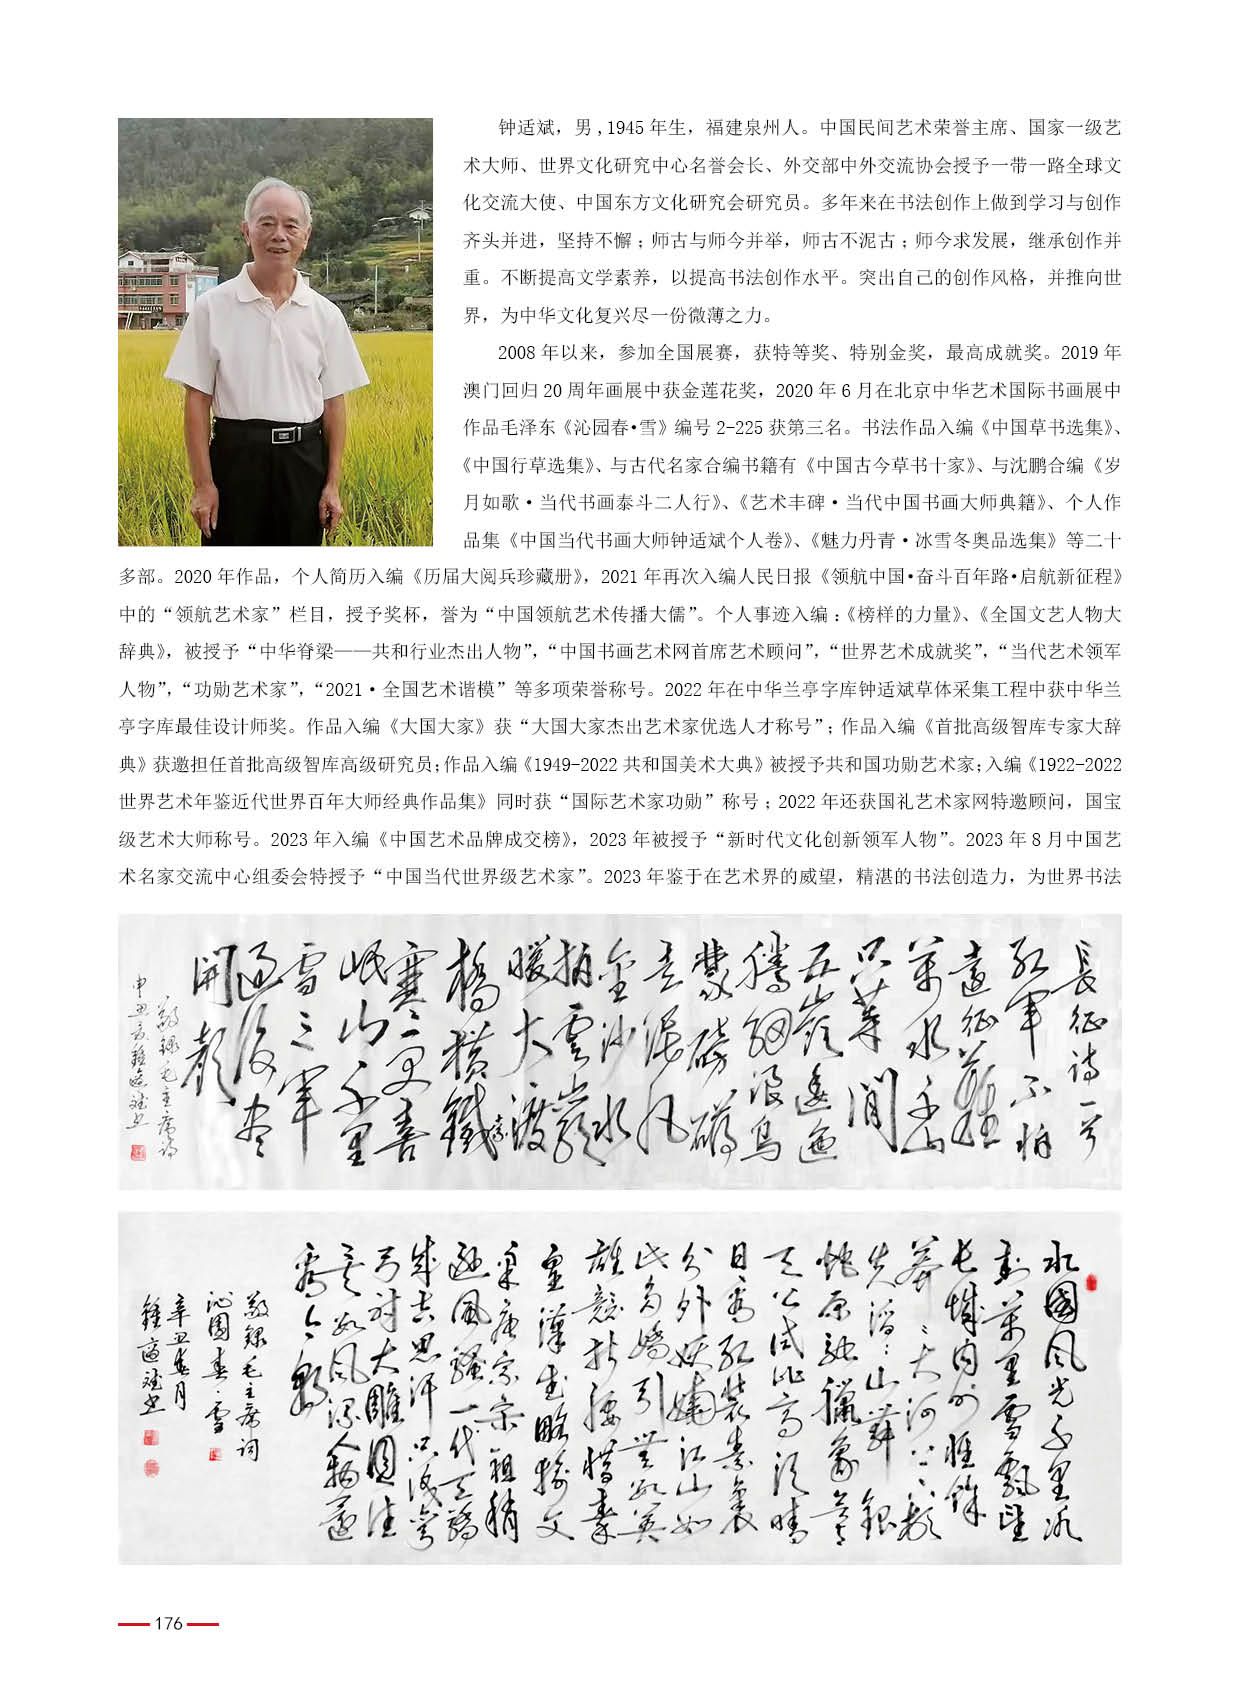 钟适斌，男 ,1945 年生，福建泉州人。中国民间艺术荣誉主席、国家一级艺
术大师、世界文化研究中心名誉会长、外交部中外交流协会授予一带一路全球文
化交流大使、中国东方文化研究会研究员。多年来在书法创作上做到学习与创作
齐头并进，坚持不懈；师古与师今并举，师古不泥古；师今求发展，继承创作并
重。不断提高文学素养，以提高书法创作水平。突出自己的创作风格，并推向世
界，为中华文化复兴尽一份微薄之力。
2008 年以来，参加全国展赛，获特等奖、特别金奖，最高成就奖。2019 年
澳门回归 20 周年画展中获金莲花奖，2020 年 6 月在北京中华艺术国际书画展中
作品毛泽东《沁园春•雪》编号 2-225 获第三名。书法作品入编《中国草书选集》、
《中国行草选集》、与古代名家合编书籍有《中国古今草书十家》、与沈鹏合编《岁
月如歌·当代书画泰斗二人行》、《艺术丰碑·当代中国书画大师典籍》、个人作
品集《中国当代书画大师钟适斌个人卷》、《魅力丹青·冰雪冬奥品选集》等二十
多部。2020 年作品，个人简历入编《历届大阅兵珍藏册》，2021 年再次入编人民日报《领航中国•奋斗百年路•启航新征程》
中的“领航艺术家”栏目，授予奖杯，誉为“中国领航艺术传播大儒”。个人事迹入编：《榜样的力量》、《全国文艺人物大
辞典》，被授予“中华脊梁——共和行业杰出人物”，“中国书画艺术网首席艺术顾问”，“世界艺术成就奖”，“当代艺术领军
人物”，“功勋艺术家”，“2021·全国艺术谐模”等多项荣誉称号。2022 年在中华兰亭字库钟适斌草体采集工程中获中华兰
亭字库最佳设计师奖。作品入编《大国大家》获“大国大家杰出艺术家优选人才称号”；作品入编《首批高级智库专家大辞
典》获邀担任首批高级智库高级研究员；作品入编《1949-2022 共和国美术大典》被授予共和国功勋艺术家；入编《1922-2022
世界艺术年鉴近代世界百年大师经典作品集》同时获“国际艺术家功勋”称号；2022 年还获国礼艺术家网特邀顾问，国宝
级艺术大师称号。2023 年入编《中国艺术品牌成交榜》，2023 年被授予“新时代文化创新领军人物”。2023 年 8 月中国艺
术名家交流中心组委会特授予“中国当代世界级艺术家”。2023 年鉴于在艺术界的威望，精湛的书法创造力，为世界书法
長征诗一首
红军不怕
遠征難
萬水千山
只等閒
五嶺逶迤
騰細浪烏
蒙磅礴
走泥丸
金沙水
拍雲崖
暖大渡
橋橫鐵索
寒更喜
岷山千里
雪三軍
過後盡
開顏
敬録毛主席诗
北國風光千里冰
封萬里雪飄望
长城内外惟餘
莽莽大河上下頓
失滔滔山舞銀
蛇原馳蠟象欲與
天公試比高须晴
日看红装素裹
分外妖嬈江山如
此多嬌引無数英
雄競折腰惜秦
皇漢武略输文
采唐宗宋祖稍
遜風騷一代天骄
成吉思汗只识弯
弓射大雕俱往
矣数風流人物還
看今朝
敬録毛主席词
沁園春·雪
辛丑春月
鍾适斌书
176